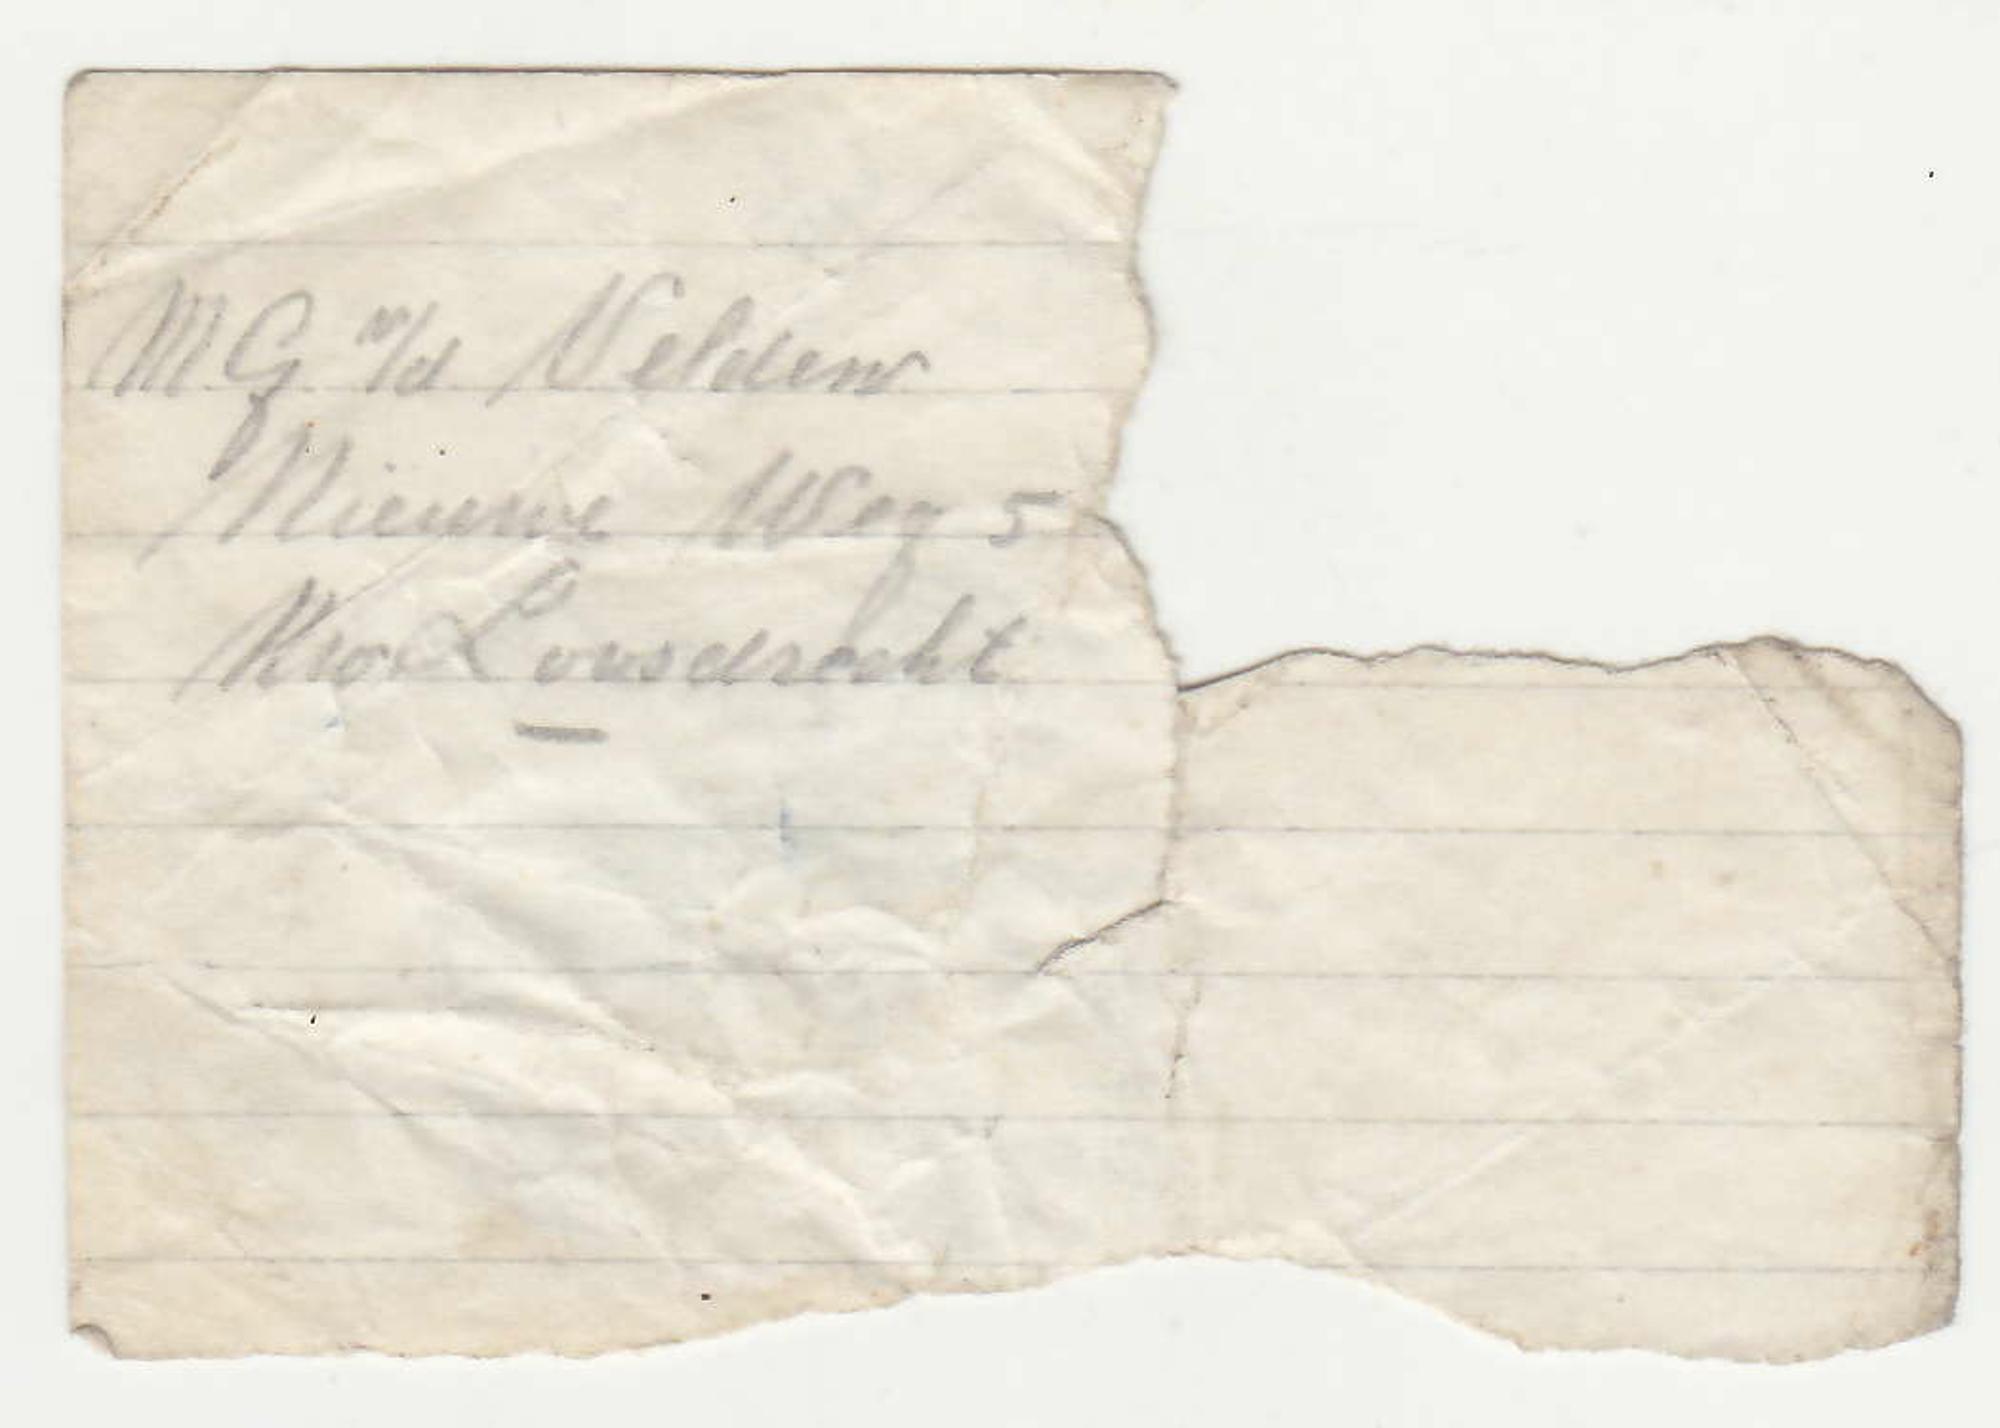 MG v/d Velden
Nieuwe Weg 5
Loosdrecht